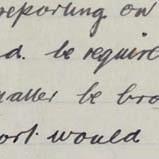 reporting on
d. be requir
matter be bro
ort would